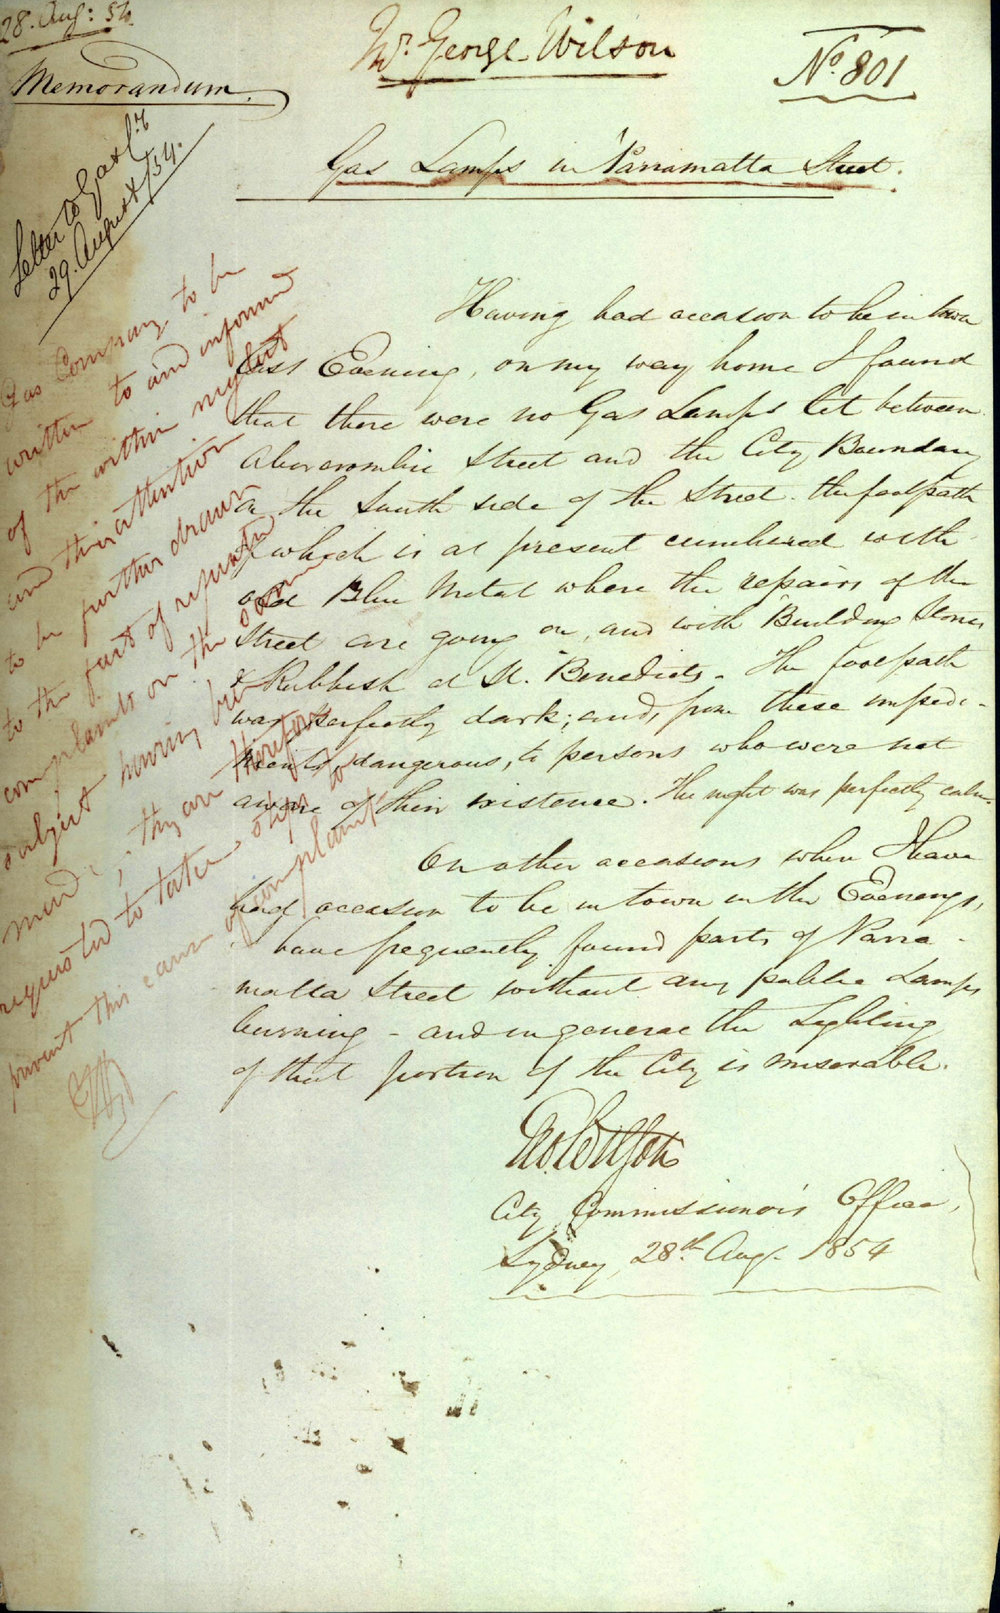 28. Aug: 54.
Memorandum.
Mr. George Wilson
No. 801
Gas Lamps in Parramatta Street.
Letter to Gas Co
29. August /54.
Having had occasion to be in town
last Evening, on my way home I found
that there were no Gas Lamps lit between
Abercrombie Street and the City Boundary
on the South side of the Street. the footpath
of which is at present cumbered with
old Blue Metal where the repairs of the
Street are going on, and with Building Stones
& Rubbish at St. Benedicts. The footpath
was perfectly dark; and, from these impedi-
ments, dangerous, to persons who were not
aware of their existence. The night was perfectly calm.
On other occasions when I have
had occasion to be in town in the Evenings,
have frequently found parts of Parra-
matta Street without any public Lamps
burning - and in general the Lighting
of that portion of the City is miserable.
Geo. Wilson
City Commissioners Office,
Sydney, 28th Aug. 1854
Gas Company to be
written to and informed
of the within neglect
and their attention
to be further drawn
to the fact of repeated
complaints on the same
subject having been
made; they are therefore
requested to take steps to
prevent this cause of complaint